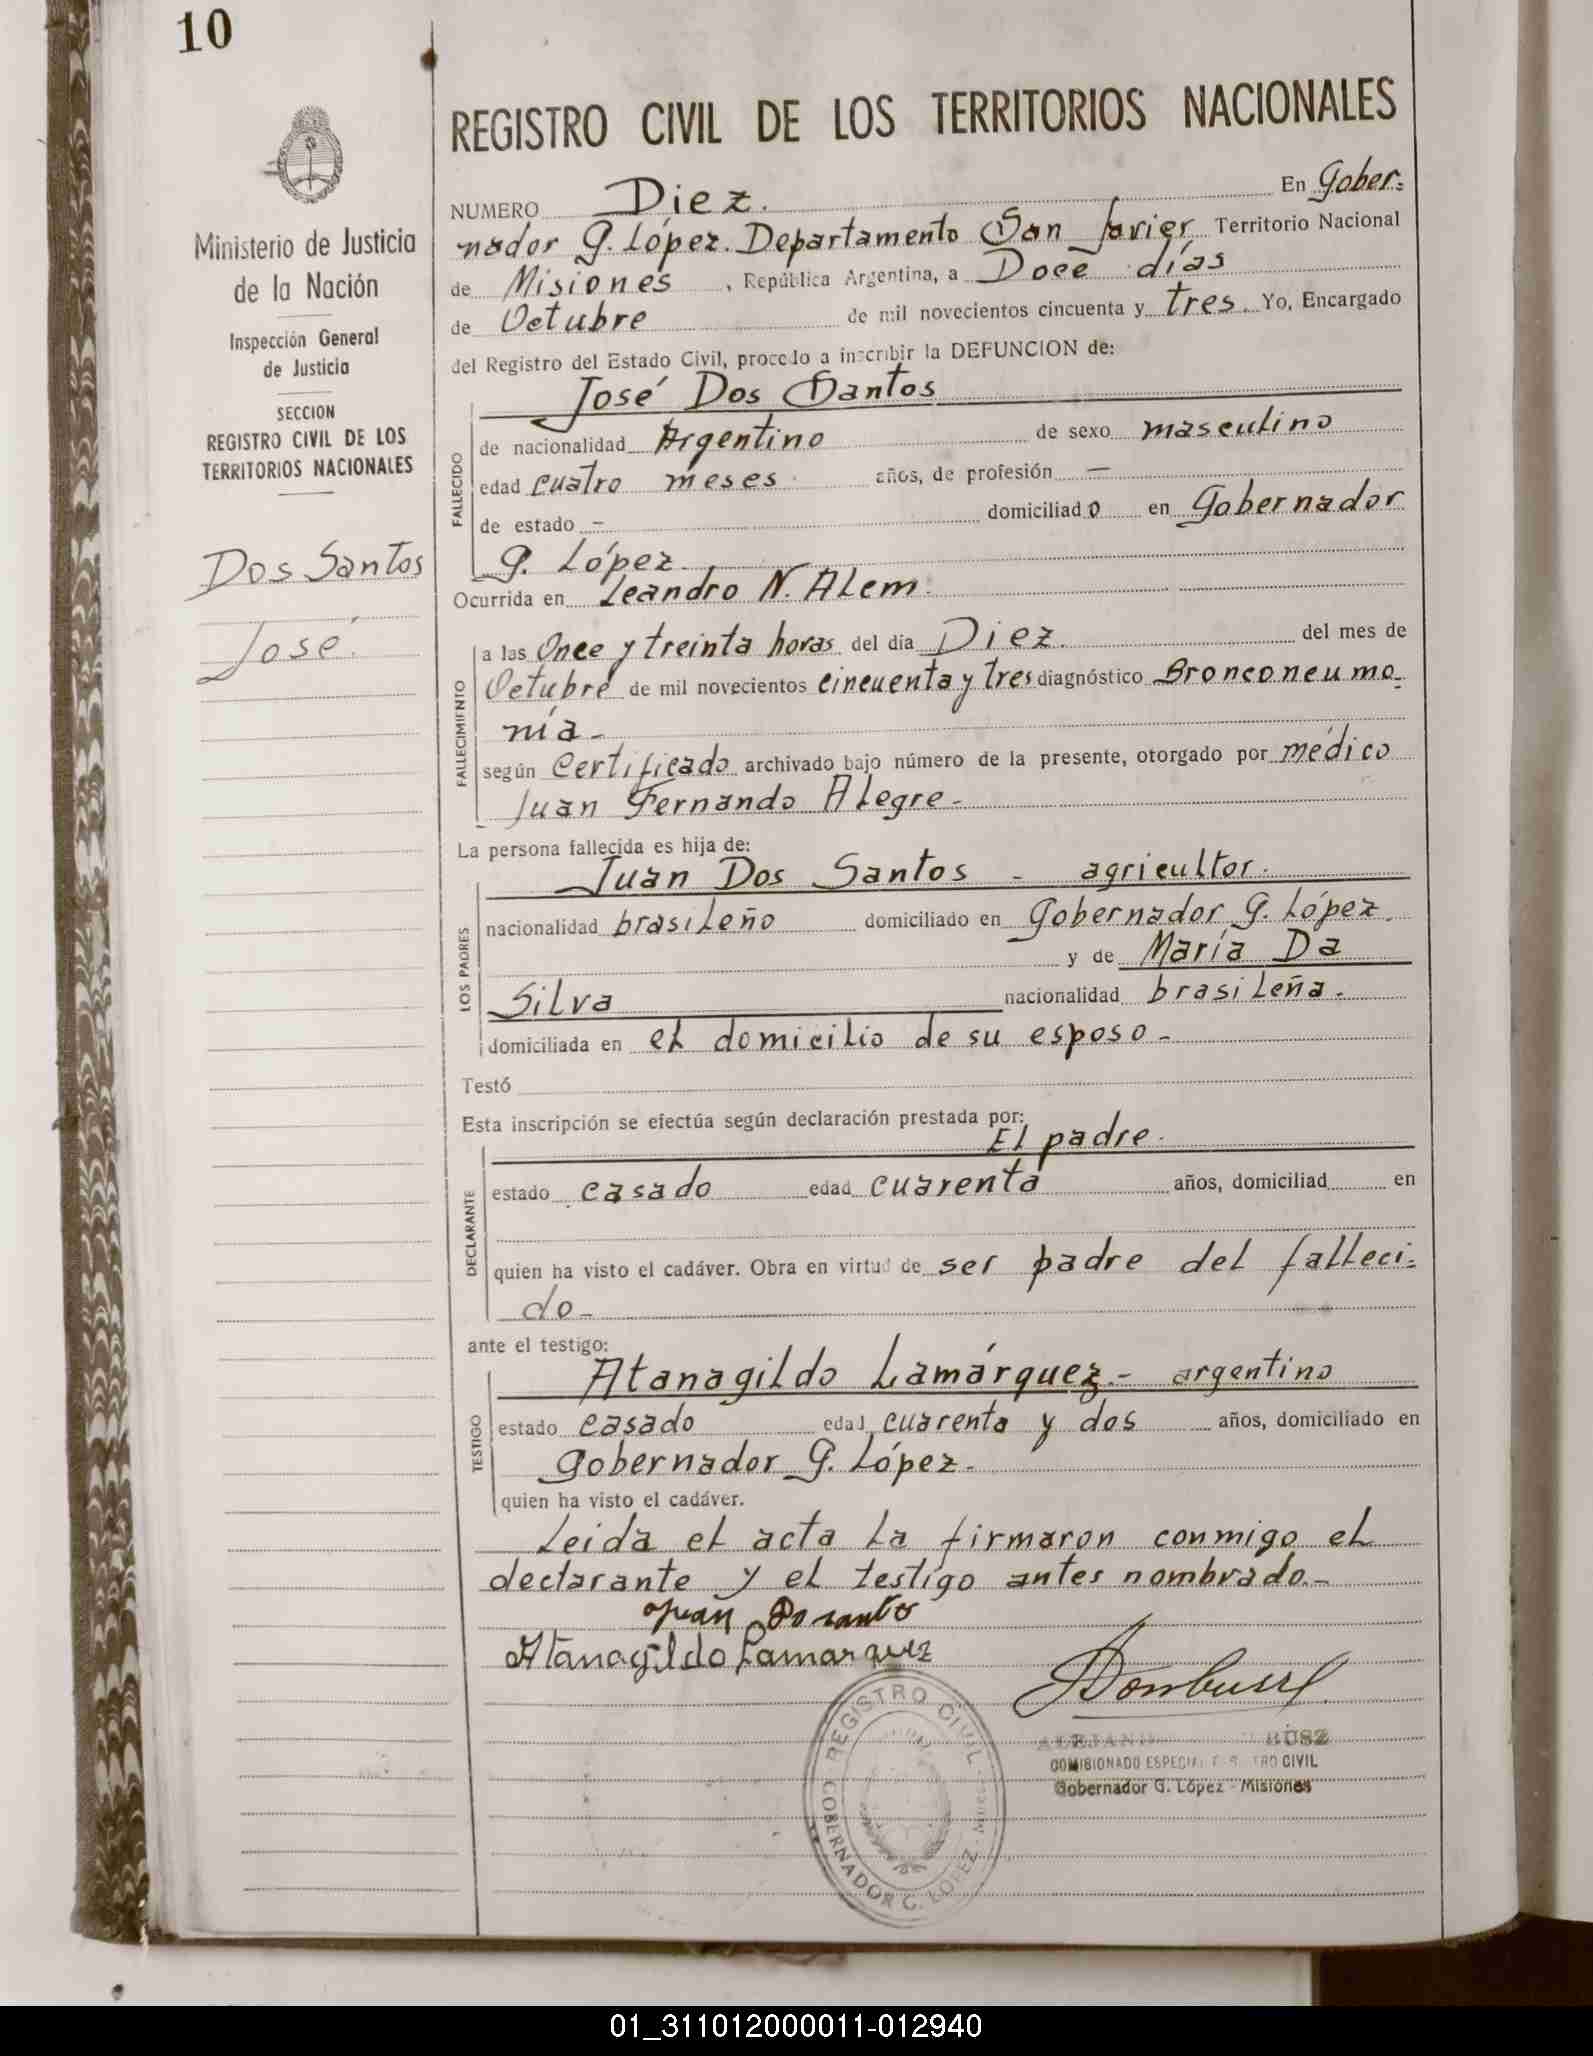 10
REGISTRO CIVIL DE LOS TERRITORIOS NACIONALES
Ministerio de Justicia
de la Nación
Inspección General
de Justicia
SECCION
REGISTRO CIVIL DE LOS
TERRITORIOS NACIONALES
Dos Santos
José.
NUMERO Diez. En Gober=
nador G. López. Departamento San Javier Territorio Nacional
de Misiones, República Argentina, a Doce días
de Octubre de mil novecientos cincuenta y tres. Yo, Encargado
del Registro del Estado Civil, procedo a inscribir la DEFUNCION de:
José Dos Santos
FALLECIDO
de nacionalidad Argentino de sexo masculino
edad cuatro meses años, de profesión —
de estado – domiciliado en Gobernador
G. López.
Ocurrida en Leandro N. Alem.
FALLECIMIENTO
a las Once y treinta horas del día Diez. del mes de
Octubre de mil novecientos cincuenta y tres diagnóstico Bronconeumo-
nía-
según Certificado archivado bajo número de la presente, otorgado por médico
Juan Fernando Alegre-
La persona fallecida es hija de:
LOS PADRES
Juan Dos Santos - agricultor.
nacionalidad brasileño domiciliado en Gobernador G. López.
y de María Da
Silva nacionalidad brasileña.
domiciliada en el domicilio de su esposo-
Testó
Esta inscripción se efectúa según declaración prestada por:
El padre.
DECLARANTE
estado casado edad cuarenta años, domiciliad en
quien ha visto el cadáver. Obra en virtud de ser padre del falleci=
do-
ante el testigo:
TESTIGO
Atanagildo Lamárquez.- argentino
estado casado edad cuarenta y dos años, domiciliado en
Gobernador G. López-
quien ha visto el cadáver.
Leida el acta la firmaron conmigo el
declarante y el testigo antes nombrado.-
Juan Do santos
Atanagildo Lamarquez
REGISTRO CIVIL
GOBERNADOR G. LOPEZ
COMISIONADO ESPECIAL CIVIL
Gobernador G. López - Misiones
01_311012000011-012940